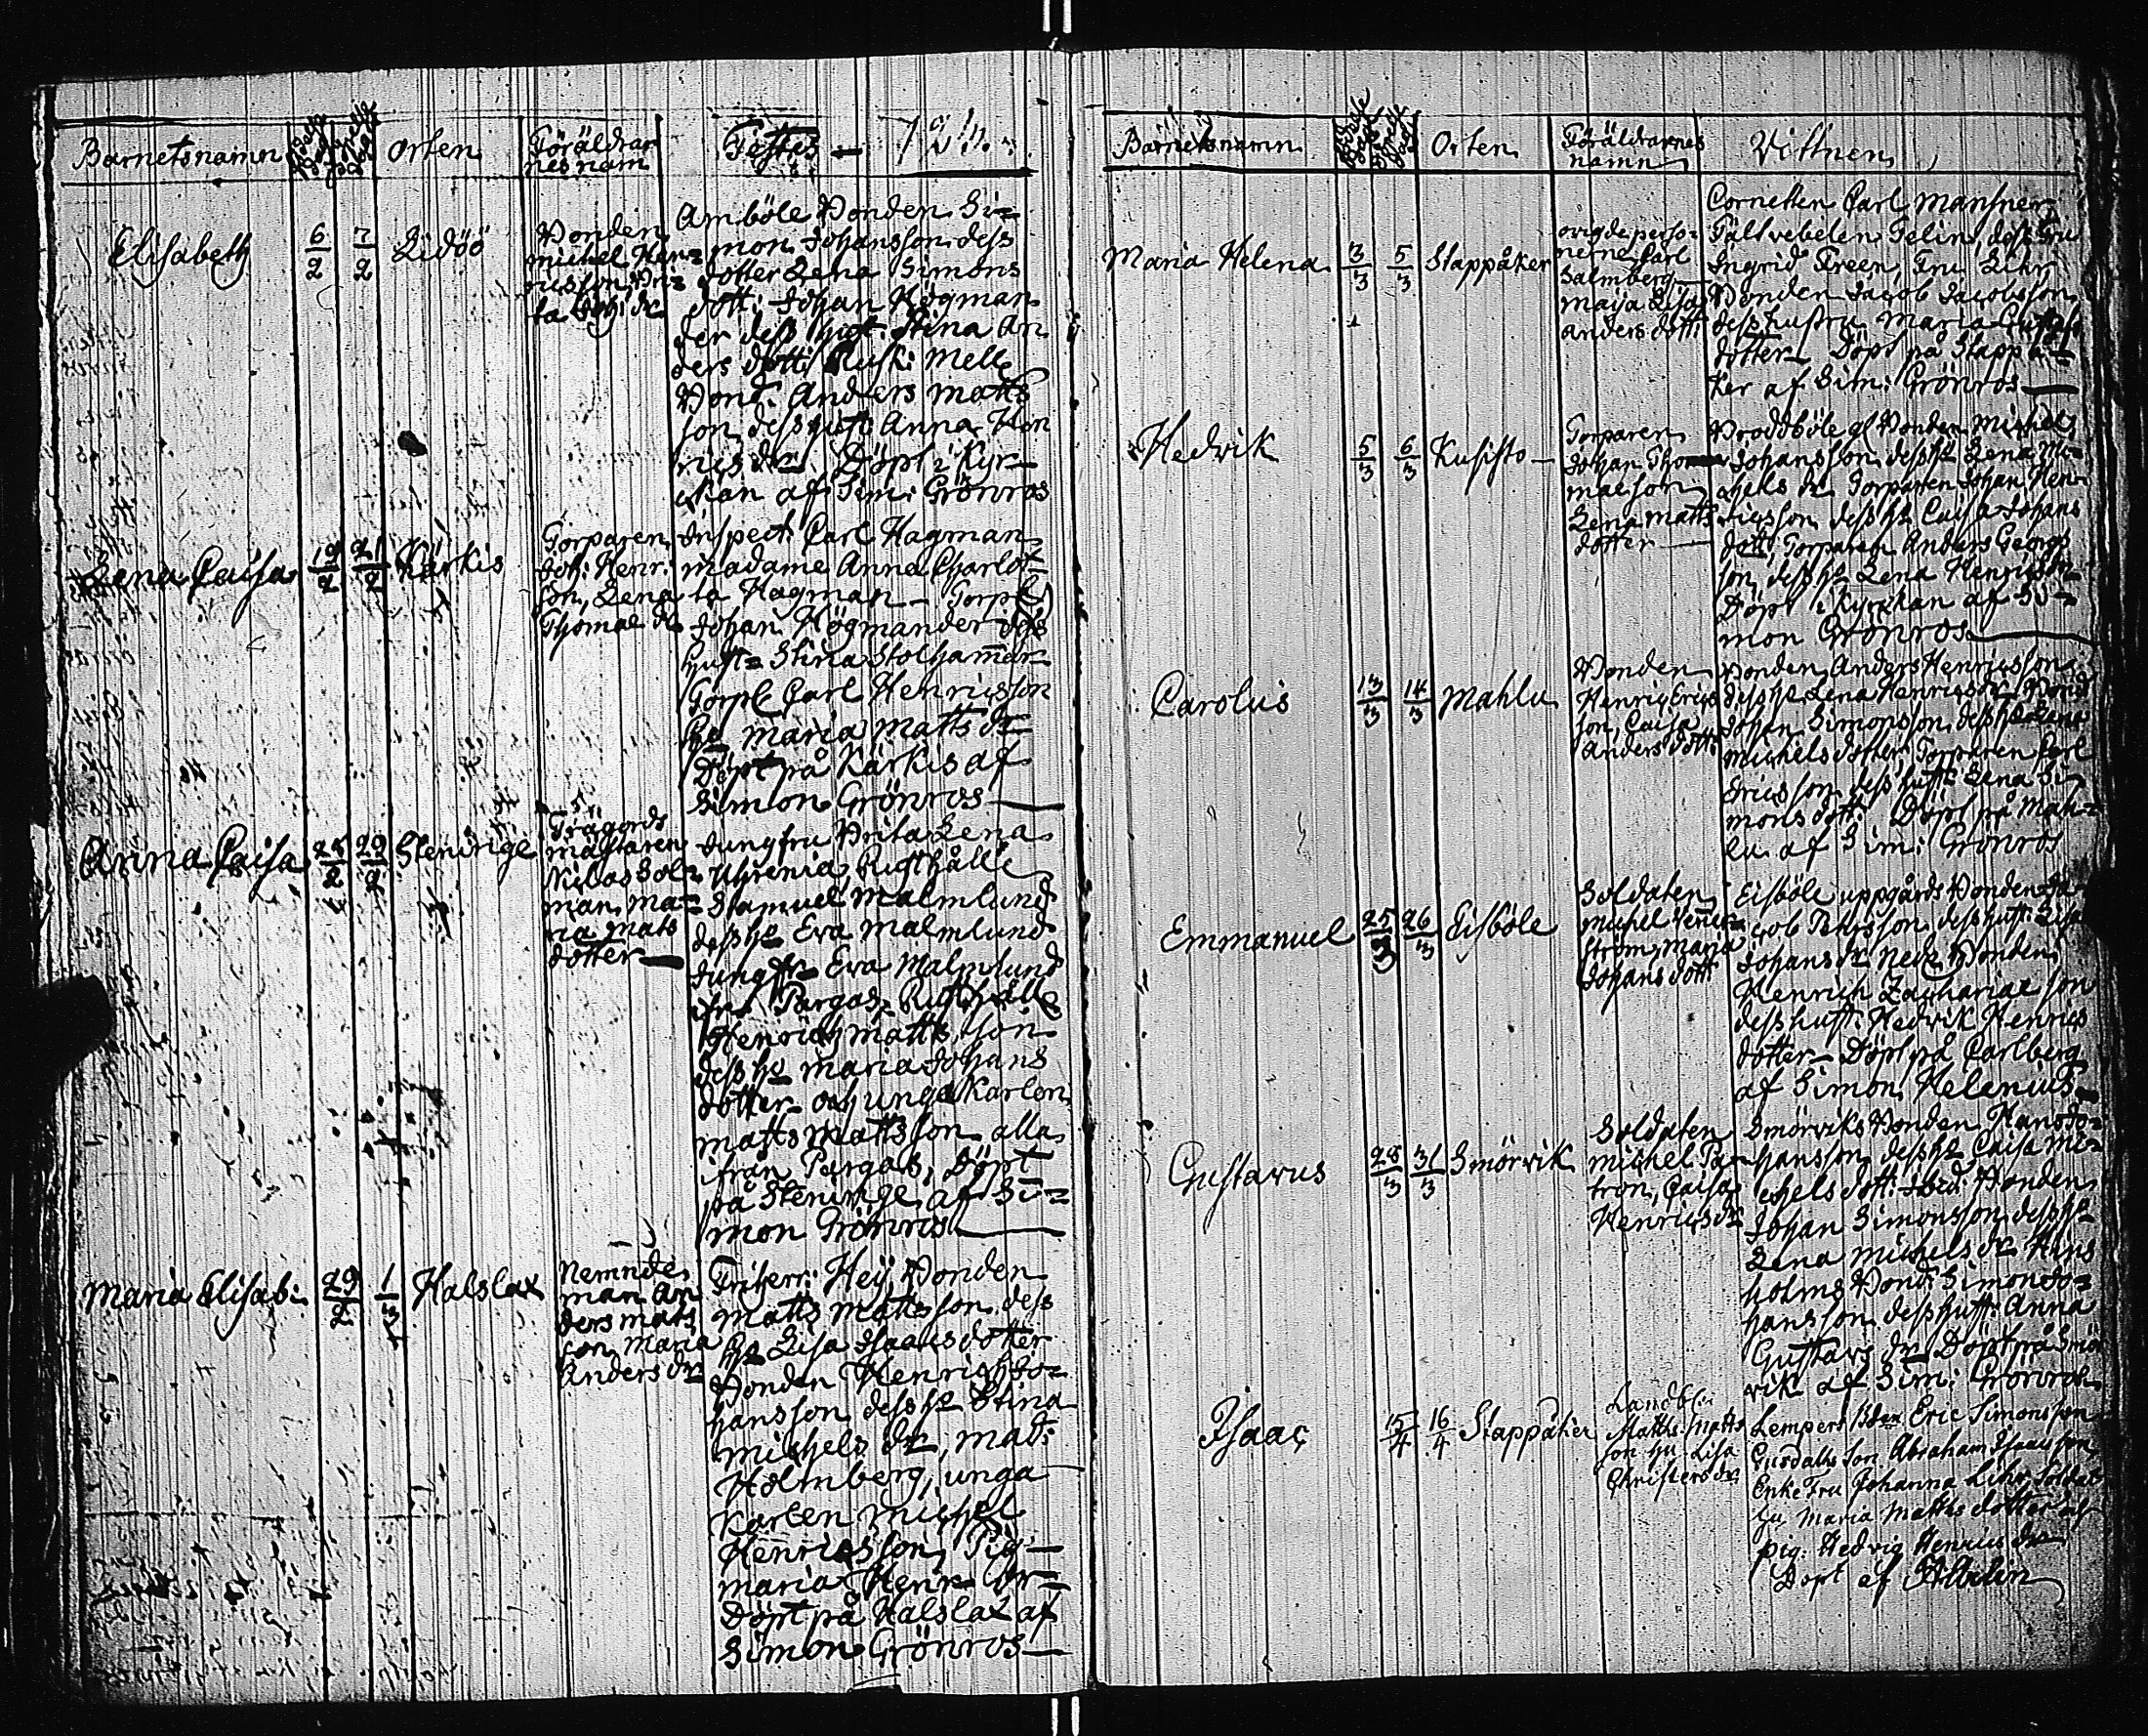 Barnetsnamn
Orten
Föräldrar
nes nam
Testes
Elisabeth
6/2
7/2
Lidöö
Bonden
Michel Hen=
ricsson, Bri=
ta
Amböle Bonden Si=
mon Johansson dess
dotter Lena Simons
dott: Johan Högman
der dess hust Stina An
ders dott: Rusk: Mell
Bond. Anders Matts
son, dess hust: Anna Hen
rics dr Döpt i Kyr=
ckan af Sim: Grönros
Lena Caisa
19/2
21/2
Kärkis
Torparen
Joh: Henr:
son, Lena
Thomæ dr
Inspect: Carl Hagman
Madame Anna Charlot=
ta Hagman - Torp:
Johan Högmander dess
hust= Stina Stolhamar
Torp: Carl Henricsson
hr Maria Matts dr
Döpt på Kärkis af
Simon Grönros
Anna Caisa
28/2
29/2
Steninge
Trägårds
mästaren
Niclas Sol=
man, Ma=
ria Mats
dotter
Jungfru Brita Lena
Uhrenia, Rusthålle
Samuel Malmlund
dess hr Eva Malmlund
Jungfr Eva Malmlund
ifrå Pargas, Rusthålle
Henrich Matts son
dess hr Maria Johans
dotter och unga Karlen
Matts Mattsson alla
ifrån Pargas, Döpt
på Steninge af Si=
mon Grönros
Maria Elisab:
29/2
1/3
Halslax
Nemnde
man An
ders Mats
son, Maria
Anders dr
Friherr: Hej, Bonden
Matts Mattsson, dess
hr Lisa Isaacs dotter
Bonden Henrich Jo=
hansson dess hr Stina
Michels dr, Mad:
Holmberg, unga
Karlen Michel
Henricsson, Pig.
Maria Henr dr
Döpt på Halslax af
Simon Grönros
Barnetsnamn
Orten
Föräldrarnes
namn
Vittnen
Maria Helena
3/3
5/3
Stappåker
ovigde perso=
nerne Carl
Salmberg
Maija Lisa
Anders dott:
Cornetten Carl Mansner
Fältvebelen Felin, dess Fru
Ingrid Freen, Fru Lihr
Bonden Jacob Jacobsson
dess hustru Maria Gustafs
dotter - Döpt på Stappå=
ker af Sim: Grönros
Hedvik
5/3
6/3
Kusisto
Torparen
Johan Tho
mæson
Lena Matts
dotter
Broddböle gl Bonden Michel
Johansson dess hr Lena Mi=
chels dr Torparen Johan Hen=
ricsson dess hr Caisa Johans
dott: Torparen Anders Georgs
son, dess hr Lena Henrics dr
Döpt i Kyrckan af Si=
mon Grönros
Carolus
13/3
14/3
Mahlu
Bonden
Henric Erics
son, Caisa
Anders dott:
Bonden Anders Henricsson
dess hr Lena Henrics dr Bond
Johan Simonsson, dess hr Lena
Michels dotter, Torparen Carl
Ericsson dess hust: Lena Si
mons dott: Döpt på Mah=
lu af Sim: Grönros
Emmanuel
25/3
26/3
Eisböle
Soldaten
Michel Tener=
ström, Maria
Johans dott
Eisböle uppgårds Bonden Ja
cob Pehrsson dess hust: Lisa
Johans dr Nedr Bonden
Henrich Zachariæ son
dess hust: Hedvik Henrics
dotter - Döpt på Carlberg
af Simon Helenius
Gustavus
28/3
31/3
Smörvik
Soldaten
Michel Pa=
tron, Caisa
Henrics dr
Smörviks Bonden Hans Jo=
hansson dess hr Caisa Mi=
chels dott: Bonden
Johan Simonsson dess hr
Lena Michels dr Hans
holms Bond: Simon Jo=
hansson dess hust: Anna
Gustavs dr Döpt på Smör
vik af Sim: Grönros
Isaac
15/4
16/4
Stappåker
Landb:
Matths Matts
son hu Lisa
Christers dr
Lempers Bden Eric Simonsson
Gusdahls son Abraham Isaacsson
Enke Fru Johanna Lihr, Soldat
hu Maria Matths dotter och
pig: Hedvig Henrics dr
Döpt af